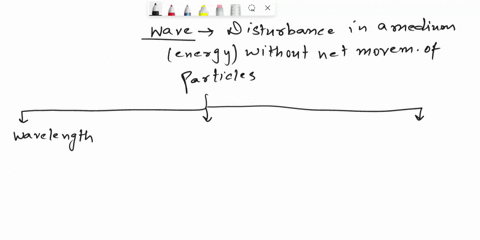 wave → Disturbance in a medium
(energy) without net movem. of
particles
wavelength